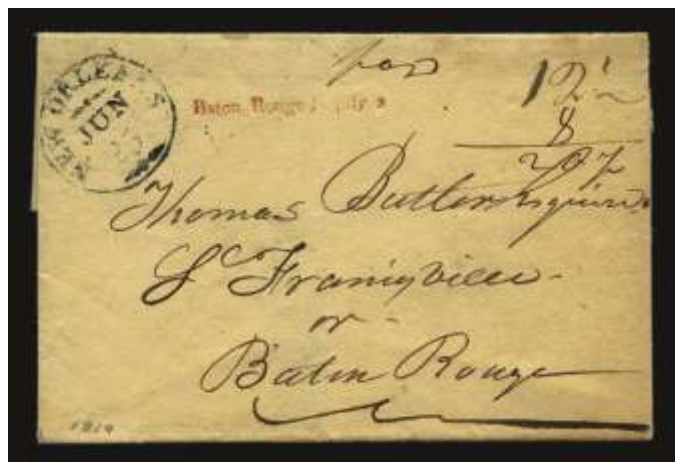 NEW ORLEANS
JUN
Baton Rouge July 2
12½
8
20½
Thomas Butler Esquire
St Francisville
or
Baton Rouge
1819